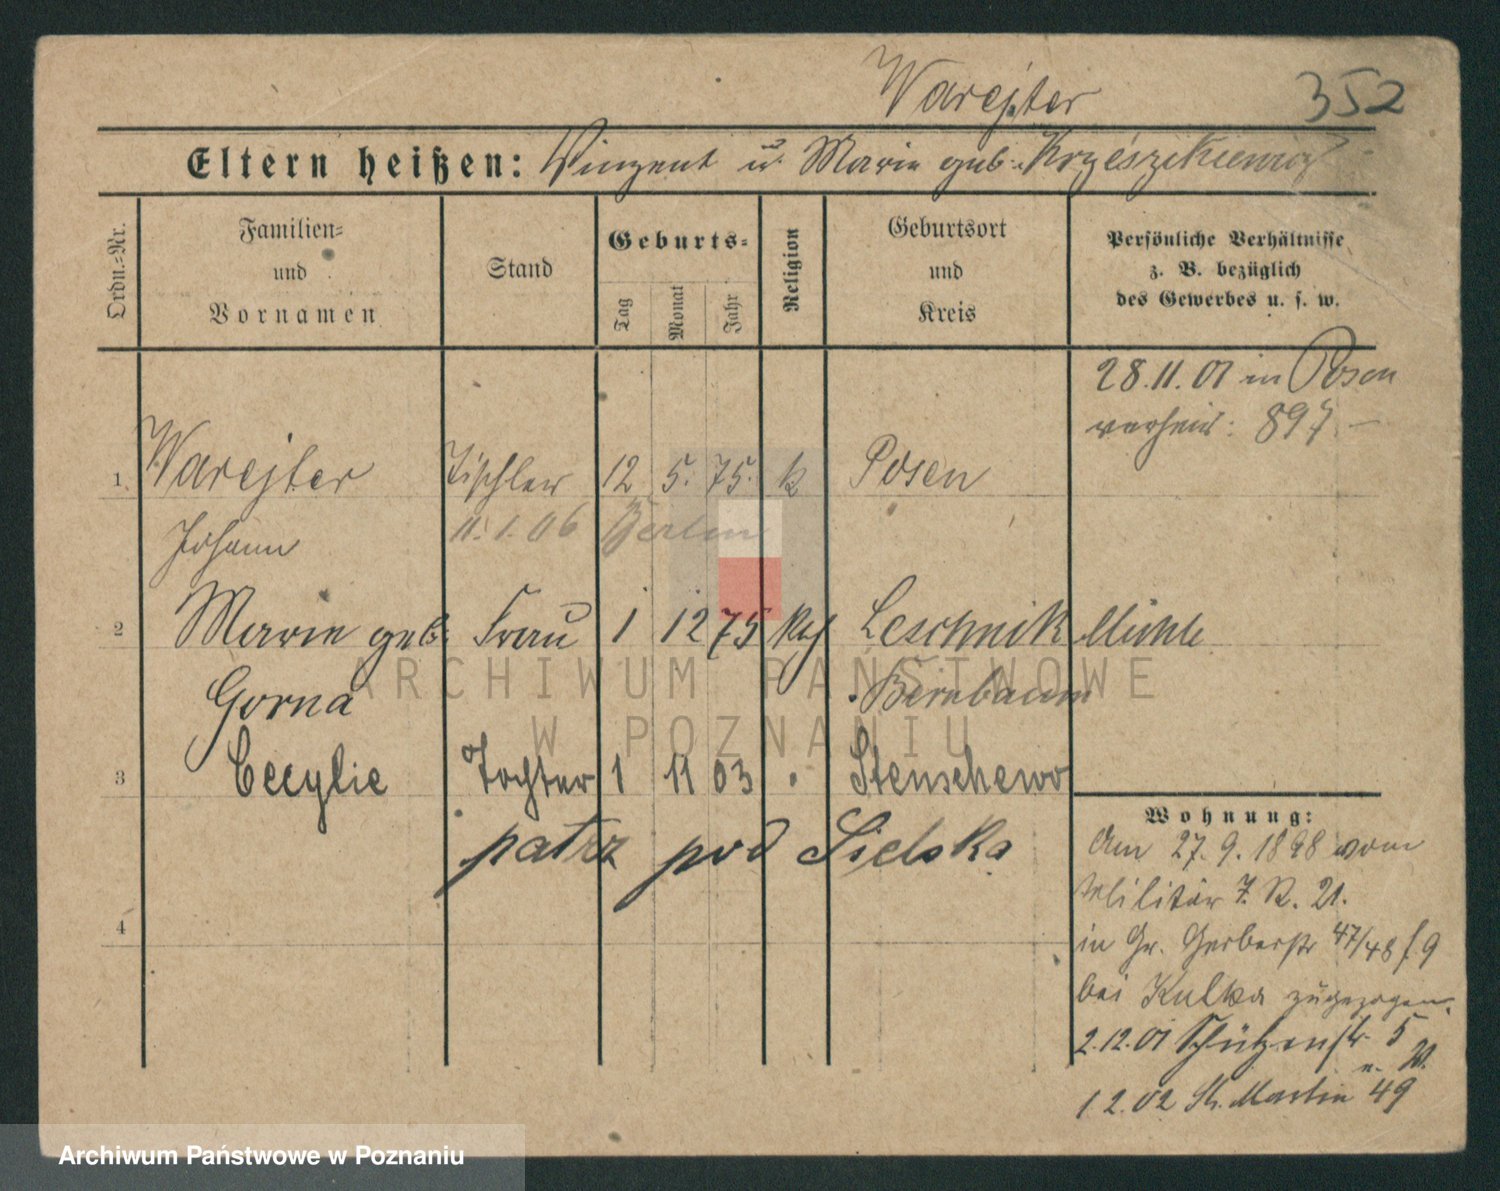 Warejter 352
Eltern heißen: Vinzent u. Marie geb. Krzészikiewicz
Ordn.-Nr.
Familien-
und
Vornamen
Stand
Geburts-
Tag
Monat
Jahr
Religion
Geburtsort
und
Kreis
Persönliche Verhältnisse
z. B. bezüglich
des Gewerbes u. s. w.
28.11.01 in Posen
verheir: 897.
1 Warejter Tischler 12 5. 75. k Posen
Johann 11.1.06 Berlin
2 Marie geb. Frau 1 12 75 kth Leschnik Mühle
Gorna Birnbaum
3 Cecylie Tochter 1 11 03 Stenschewo
patrz pod Sielska
4
Wohnung:
Am 27.9.1898 vom
Militär J. R. 21.
in Gr. Gerberstr 47/48 f. 9
bei Kulka zugezogen.
2.12.01 Schützenstr 5
1.2.02 St. Martin 49
ARCHIWUM PAŃSTWOWE
W POZNANIU
Archiwum Państwowe w Poznaniu